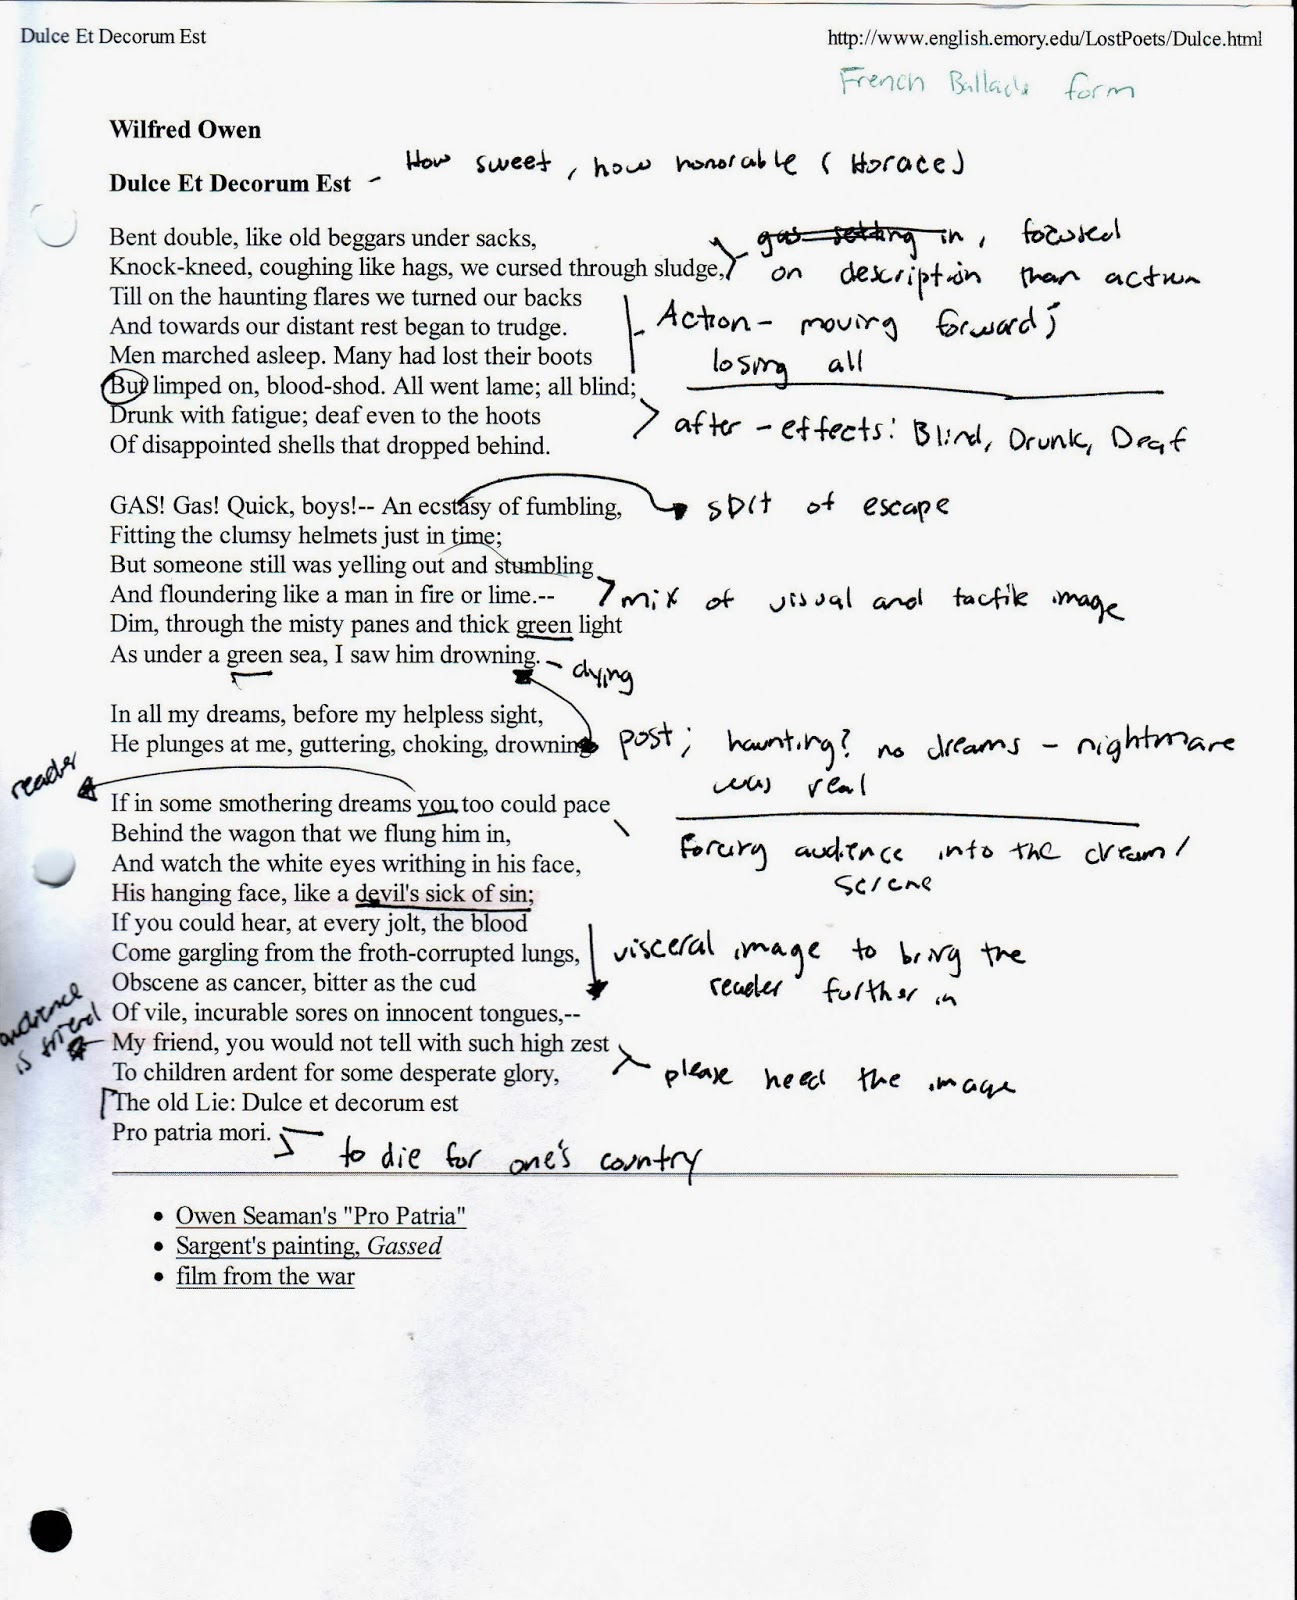 Dulce Et Decorum Est http://www.english.emory.edu/LostPoets/Dulce.html
French Ballade form
Wilfred Owen
Dulce Et Decorum Est - How sweet, how honorable (Horace)
Bent double, like old beggars under sacks, gas setting in, focused
Knock-kneed, coughing like hags, we cursed through sludge, on description than action
Till on the haunting flares we turned our backs
And towards our distant rest began to trudge. Action - moving forward;
Men marched asleep. Many had lost their boots losing all
But limped on, blood-shod. All went lame; all blind;
Drunk with fatigue; deaf even to the hoots after-effects: Blind, Drunk, Deaf
Of disappointed shells that dropped behind.
GAS! Gas! Quick, boys!-- An ecstasy of fumbling, sort of escape
Fitting the clumsy helmets just in time;
But someone still was yelling out and stumbling
And floundering like a man in fire or lime.-- mix of visual and tactile image
Dim, through the misty panes and thick green light
As under a green sea, I saw him drowning. - dying
In all my dreams, before my helpless sight,
He plunges at me, guttering, choking, drowning. post; haunting? no dreams - nightmare
was real
reader
If in some smothering dreams you too could pace
Behind the wagon that we flung him in, Forcing audience into the dream/
And watch the white eyes writhing in his face, scene
His hanging face, like a devil's sick of sin;
If you could hear, at every jolt, the blood
Come gargling from the froth-corrupted lungs, visceral image to bring the
Obscene as cancer, bitter as the cud reader further in
Of vile, incurable sores on innocent tongues,--
audience
is friend
My friend, you would not tell with such high zest
To children ardent for some desperate glory, please heed the image
The old Lie: Dulce et decorum est
Pro patria mori. to die for one's country
• Owen Seaman's "Pro Patria"
• Sargent's painting, Gassed
• film from the war